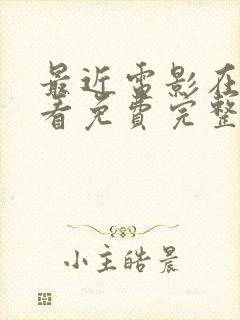 最近电影在
看免费完整
小主皓晨